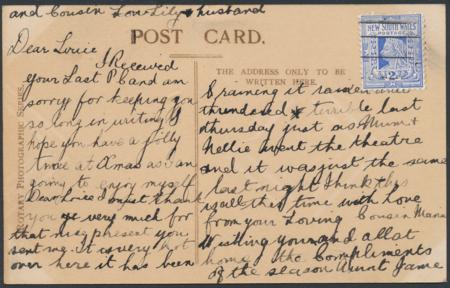 and Cousin Lou Lily & husband
POST CARD.
NEW SOUTH WALES
POSTAGE
2
THE ADDRESS ONLY TO BE
WRITTEN HERE.
ROTARY PHOTOGRAPHIC SERIES.
Dear Louie
I Received
your Last PC and am
sorry for keeping you
so long in writing I
hope you have a jolly
time at Xmas as I am
going to enjoy myself
Dear Louie I must thank
you very much for
that nice present you
sent me it is very hot
over here it has been
raining it rained and
thundered terrible last
thursday just as Mum &
Nellie went the theatre
and it was just the same
last night I think this
is all this time with Love
from your Loving Cousin Maria
Wishing you and all at
home the Compliments
of the season Aunt Jane